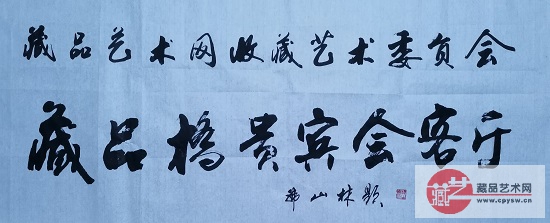 藏品艺术网收藏艺术委员会
藏品桥贵宾会客厅
山林题
藏艺
藏品艺术网
www.cpysw.cn